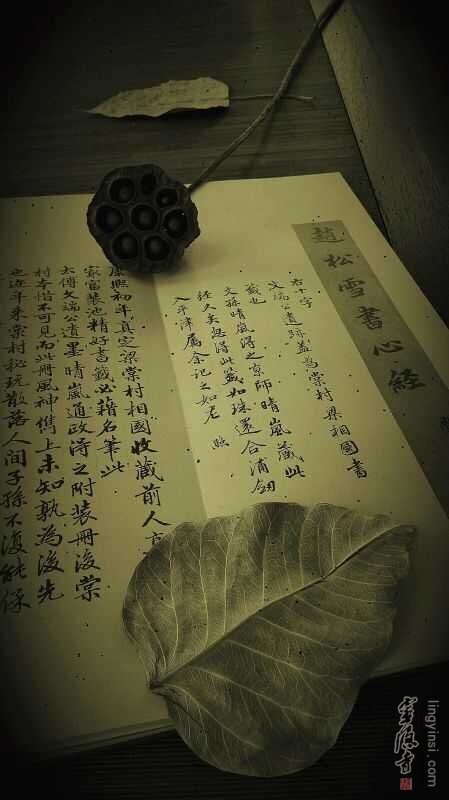 趙松雪書心經
右十字
文端公遺跡蓋為棠村梁相國書
籤也
文孫晴嵐得之京師晴嵐藏此
經久矣忽得此籤如珠還合浦劒
入平津屬余記之如右 照
康熙初年真定梁棠村相國收藏前人
家富裝池精好書籤必藉名筆此
太傅文端公遺墨晴嵐通政得之附裝冊後棠
村本惜不可見而此冊風神儁上未知孰為後先
也近年來棠村秘玩散落人間子孫不復能保
靈隱寺
lingyinsi.com